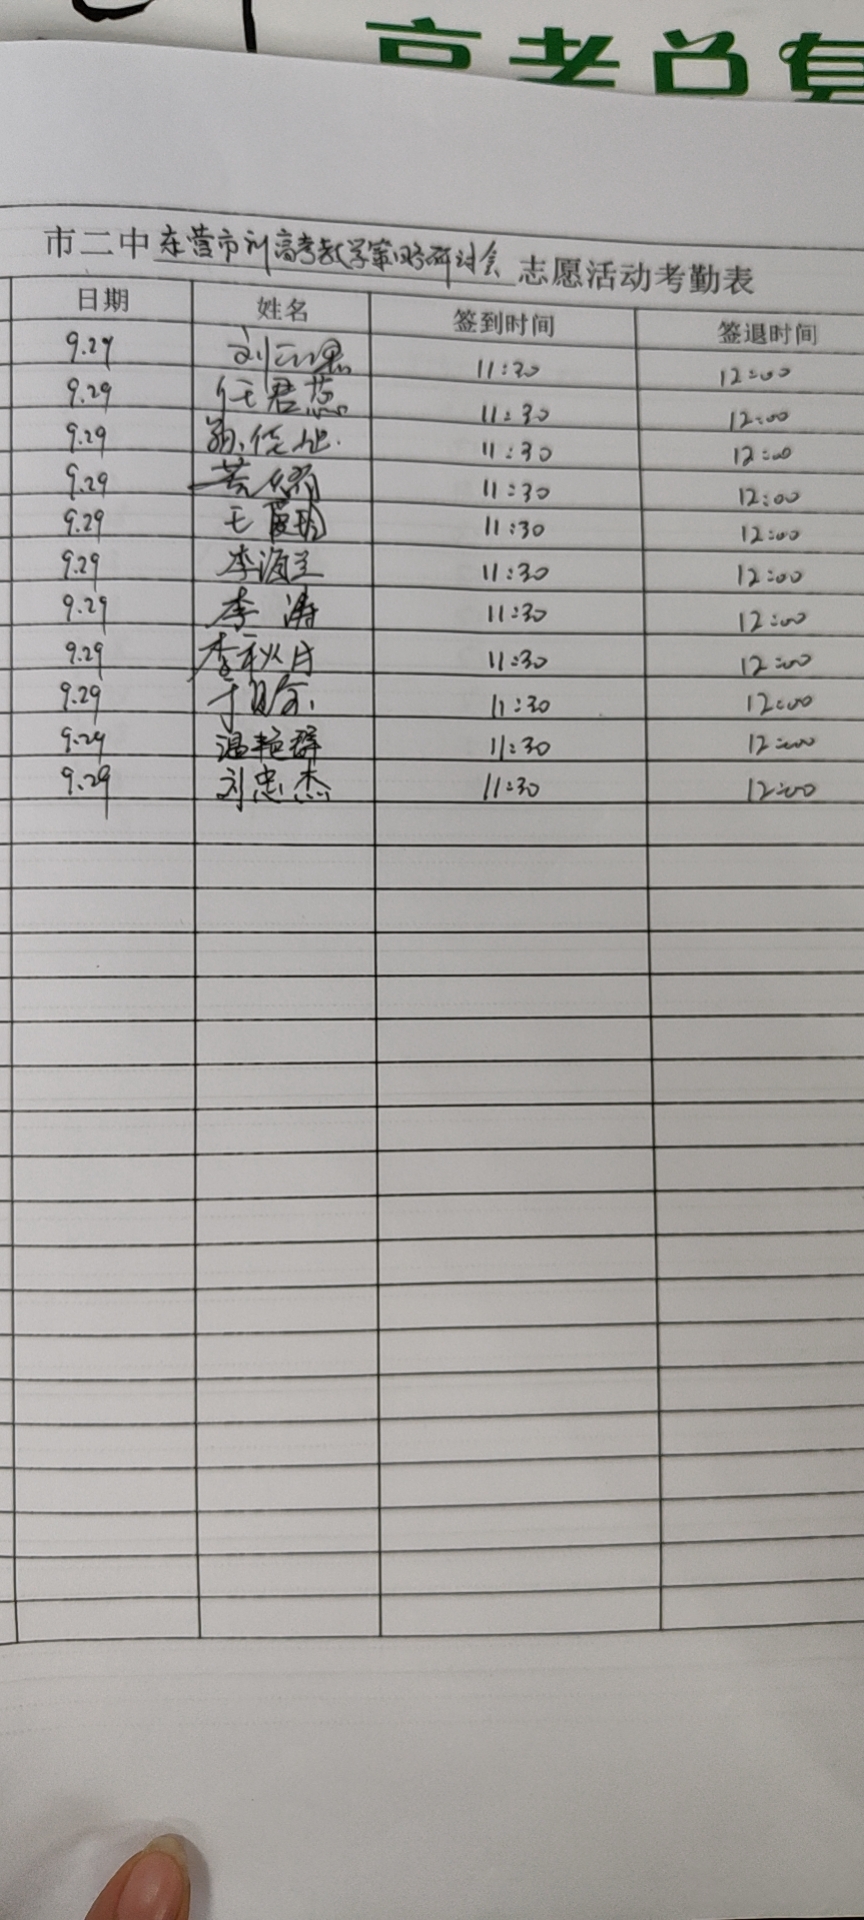 高考总复
市二中东营市新高考教学策略研讨会志愿活动考勤表
日期 姓名 签到时间 签退时间
9.29 刘 11:30 12:00
9.29 任君蕊 11:30 12:00
9.29 11:30 12:00
9.29 11:30 12:00
9.29 王 11:30 12:00
9.29 李海兰 11:30 12:00
9.29 李涛 11:30 12:00
9.29 李秋月 11:30 12:00
9.29 于 11:30 12:00
9.29 温艳群 11:30 12:00
9.29 刘忠杰 11:30 12:00